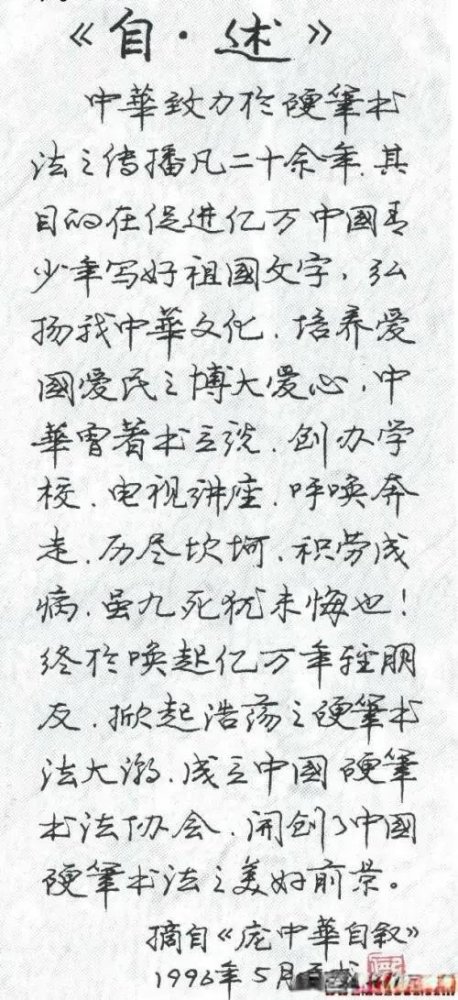 《自·述》
中華致力於硬筆书
法之传播凡二十余年.其
目的在促进亿万中國青
少年写好祖國文字,弘
扬我中華文化.培养爱
國爱民之博大爱心,中
華曾著书立说.创办学
校.电视讲座.呼唤奔
走.历尽坎坷.积劳成
病.虽九死犹未悔也!
终於唤起亿万年轻朋
友.掀起浩荡之硬筆书
法大潮.成立中國硬筆
书法协会.开创了中國
硬筆书法之美好前景。
摘自《庞中華自叙》
1996年5月